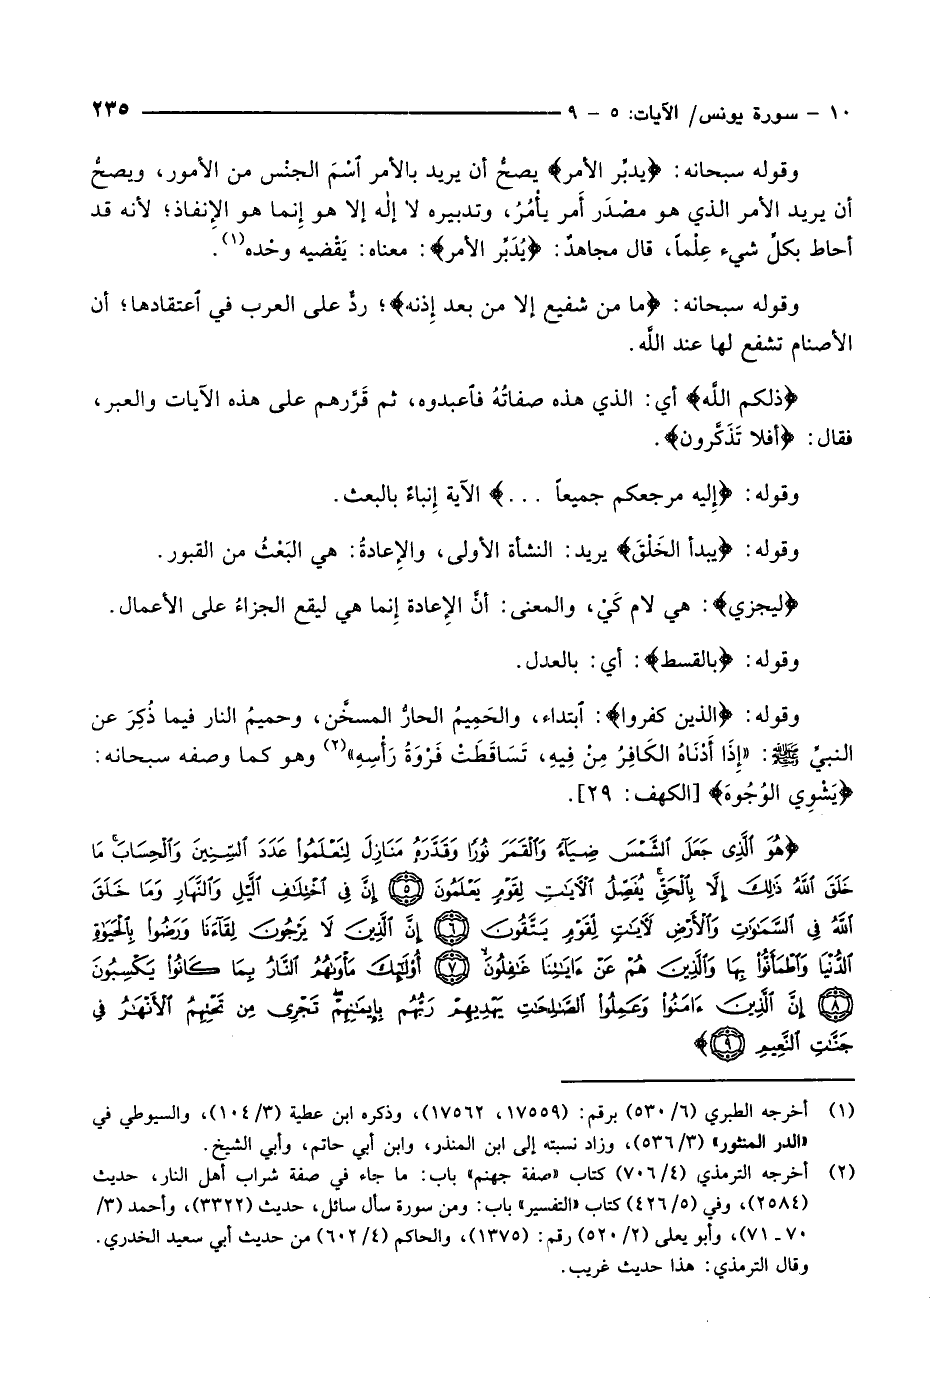 ١٠ - سورة يونس/ الآيات: ٥ - ٩ ٢٣٥
وقوله سبحانه: ﴿يدبِّر الأمر﴾ يصحُّ أن يريد بالأمر ٱسْمَ الجنْس من الأمور، ويصحُّ
أن يريد الأمر الذي هو مصْدَر أمر يأْمُرُ، وتدبيره لا إلٰه إلا هو إنما هو الإنفاذ؛ لأنه قد
أحاط بكلِّ شيء عِلْماً، قال مجاهدٌ: ﴿يُدَبِّر الأمر﴾: معناه: يَقْضيه وحْده(١).
وقوله سبحانه: ﴿ما من شفيع إلا من بعد إذنه﴾؛ ردٌّ على العرب في ٱعتقادها؛ أن
الأصنام تشفع لها عند اللَّه.
﴿ذلكم اللَّه﴾ أي: الذي هذه صفاتُهُ فٱعبدوه، ثم قَرَّرهم على هذه الآيات والعبر،
فقال: ﴿أفلا تَذَكَّرون﴾.
وقوله: ﴿إليه مرجعكم جميعاً ...﴾ الآية إنباءٌ بالبعث.
وقوله: ﴿يبدأ الخَلْقَ﴾ يريد: النشأة الأولى، والإعادةُ: هي البَعْثُ من القبور.
﴿ليجزي﴾: هي لام كَيْ، والمعنى: أنَّ الإعادة إنما هي ليقع الجزاءُ على الأعمال.
وقوله: ﴿بالقسط﴾: أي: بالعدل.
وقوله: ﴿الذين كفروا﴾: ٱبتداء، والحَمِيمُ الحارُّ المسخَّن، وحميمُ النار فيما ذُكِرَ عن
النبيِّ ﷺ: «إِذَا أَدْنَاهُ الكَافِرُ مِنْ فِيهِ، تَسَاقَطَتْ فَرْوَةُ رَأْسِهِ»(٢) وهو كما وصفه سبحانه:
﴿يَشْوِي الوُجُوهَ﴾ [الكهف: ٢٩].
﴿هُوَ ٱلَّذِى جَعَلَ ٱلشَّمْسَ ضِيَآءً وَٱلْقَمَرَ نُورًا وَقَدَّرَهُۥ مَنَازِلَ لِتَعْلَمُوا۟ عَدَدَ ٱلسِّنِينَ وَٱلْحِسَابَۚ مَا
خَلَقَ ٱللَّهُ ذَٰلِكَ إِلَّا بِٱلْحَقِّۚ يُفَصِّلُ ٱلْءَايَٰتِ لِقَوْمٍ يَعْلَمُونَ ٥ إِنَّ فِى ٱخْتِلَٰفِ ٱلَّيْلِ وَٱلنَّهَارِ وَمَا خَلَقَ
ٱللَّهُ فِى ٱلسَّمَٰوَٰتِ وَٱلْأَرْضِ لَءَايَٰتٍ لِّقَوْمٍ يَتَّقُونَ ٦ إِنَّ ٱلَّذِينَ لَا يَرْجُونَ لِقَآءَنَا وَرَضُوا۟ بِٱلْحَيَوٰةِ
ٱلدُّنْيَا وَٱطْمَأَنُّوا۟ بِهَا وَٱلَّذِينَ هُمْ عَنْ ءَايَٰتِنَا غَٰفِلُونَۙ ٧ أُو۟لَٰٓئِكَ مَأْوَىٰهُمُ ٱلنَّارُ بِمَا كَانُوا۟ يَكْسِبُونَ
٨ إِنَّ ٱلَّذِينَ ءَامَنُوا۟ وَعَمِلُوا۟ ٱلصَّٰلِحَٰتِ يَهْدِيهِمْ رَبُّهُم بِإِيمَٰنِهِمْۖ تَجْرِى مِن تَحْتِهِمُ ٱلْأَنْهَٰرُ فِى
جَنَّٰتِ ٱلنَّعِيمِ ٩﴾
(١) أخرجه الطبري (٦/ ٥٣٠) برقم: (١٧٥٥٩، ١٧٥٦٢)، وذكره ابن عطية (٣/ ١٠٤)، والسيوطي في
«الدر المنثور» (٣/ ٥٣٦)، وزاد نسبته إلى ابن المنذر، وابن أبي حاتم، وأبي الشيخ.
(٢) أخرجه الترمذي (٤/ ٧٠٦) كتاب «صفة جهنم» باب: ما جاء في صفة شراب أهل النار، حديث
(٢٥٨٤)، وفي (٥/ ٤٢٦) كتاب «التفسير» باب: ومن سورة سأل سائل، حديث (٣٣٢٢)، وأحمد (٣/
٧٠ـ ٧١)، وأبو يعلى (٢/ ٥٢٠) رقم: (١٣٧٥)، والحاكم (٤/ ٦٠٢) من حديث أبي سعيد الخدري.
وقال الترمذي: هذا حديث غريب.